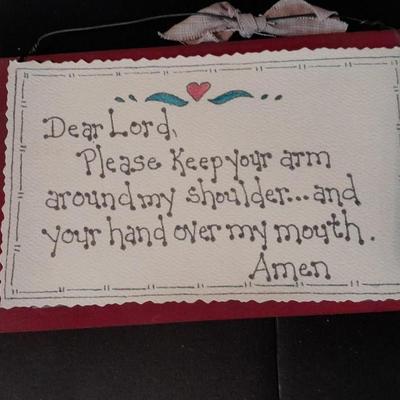 Dear Lord,
Please Keep your arm
around my shoulder...and
your hand over my mouth.
Amen